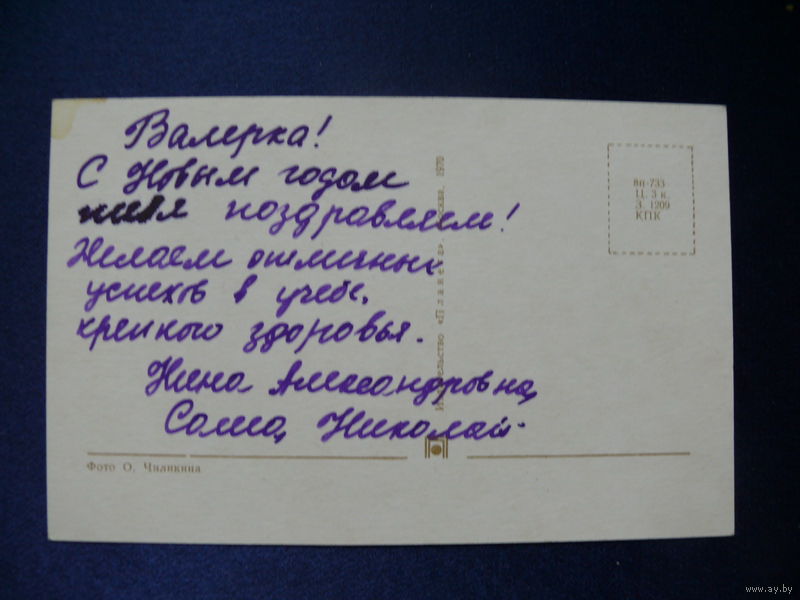 Валерка!
С Новым годом
тебя поздравляем!
Желаем отличных
успехов в учебе,
крепкого здоровья.
Нина Александровна,
Николай
Издательство «Планета». Москва. 1970
вп-733
Ц. 3 к.
З. 1209
КПК
Фото О. Чиликина
www.ay.by